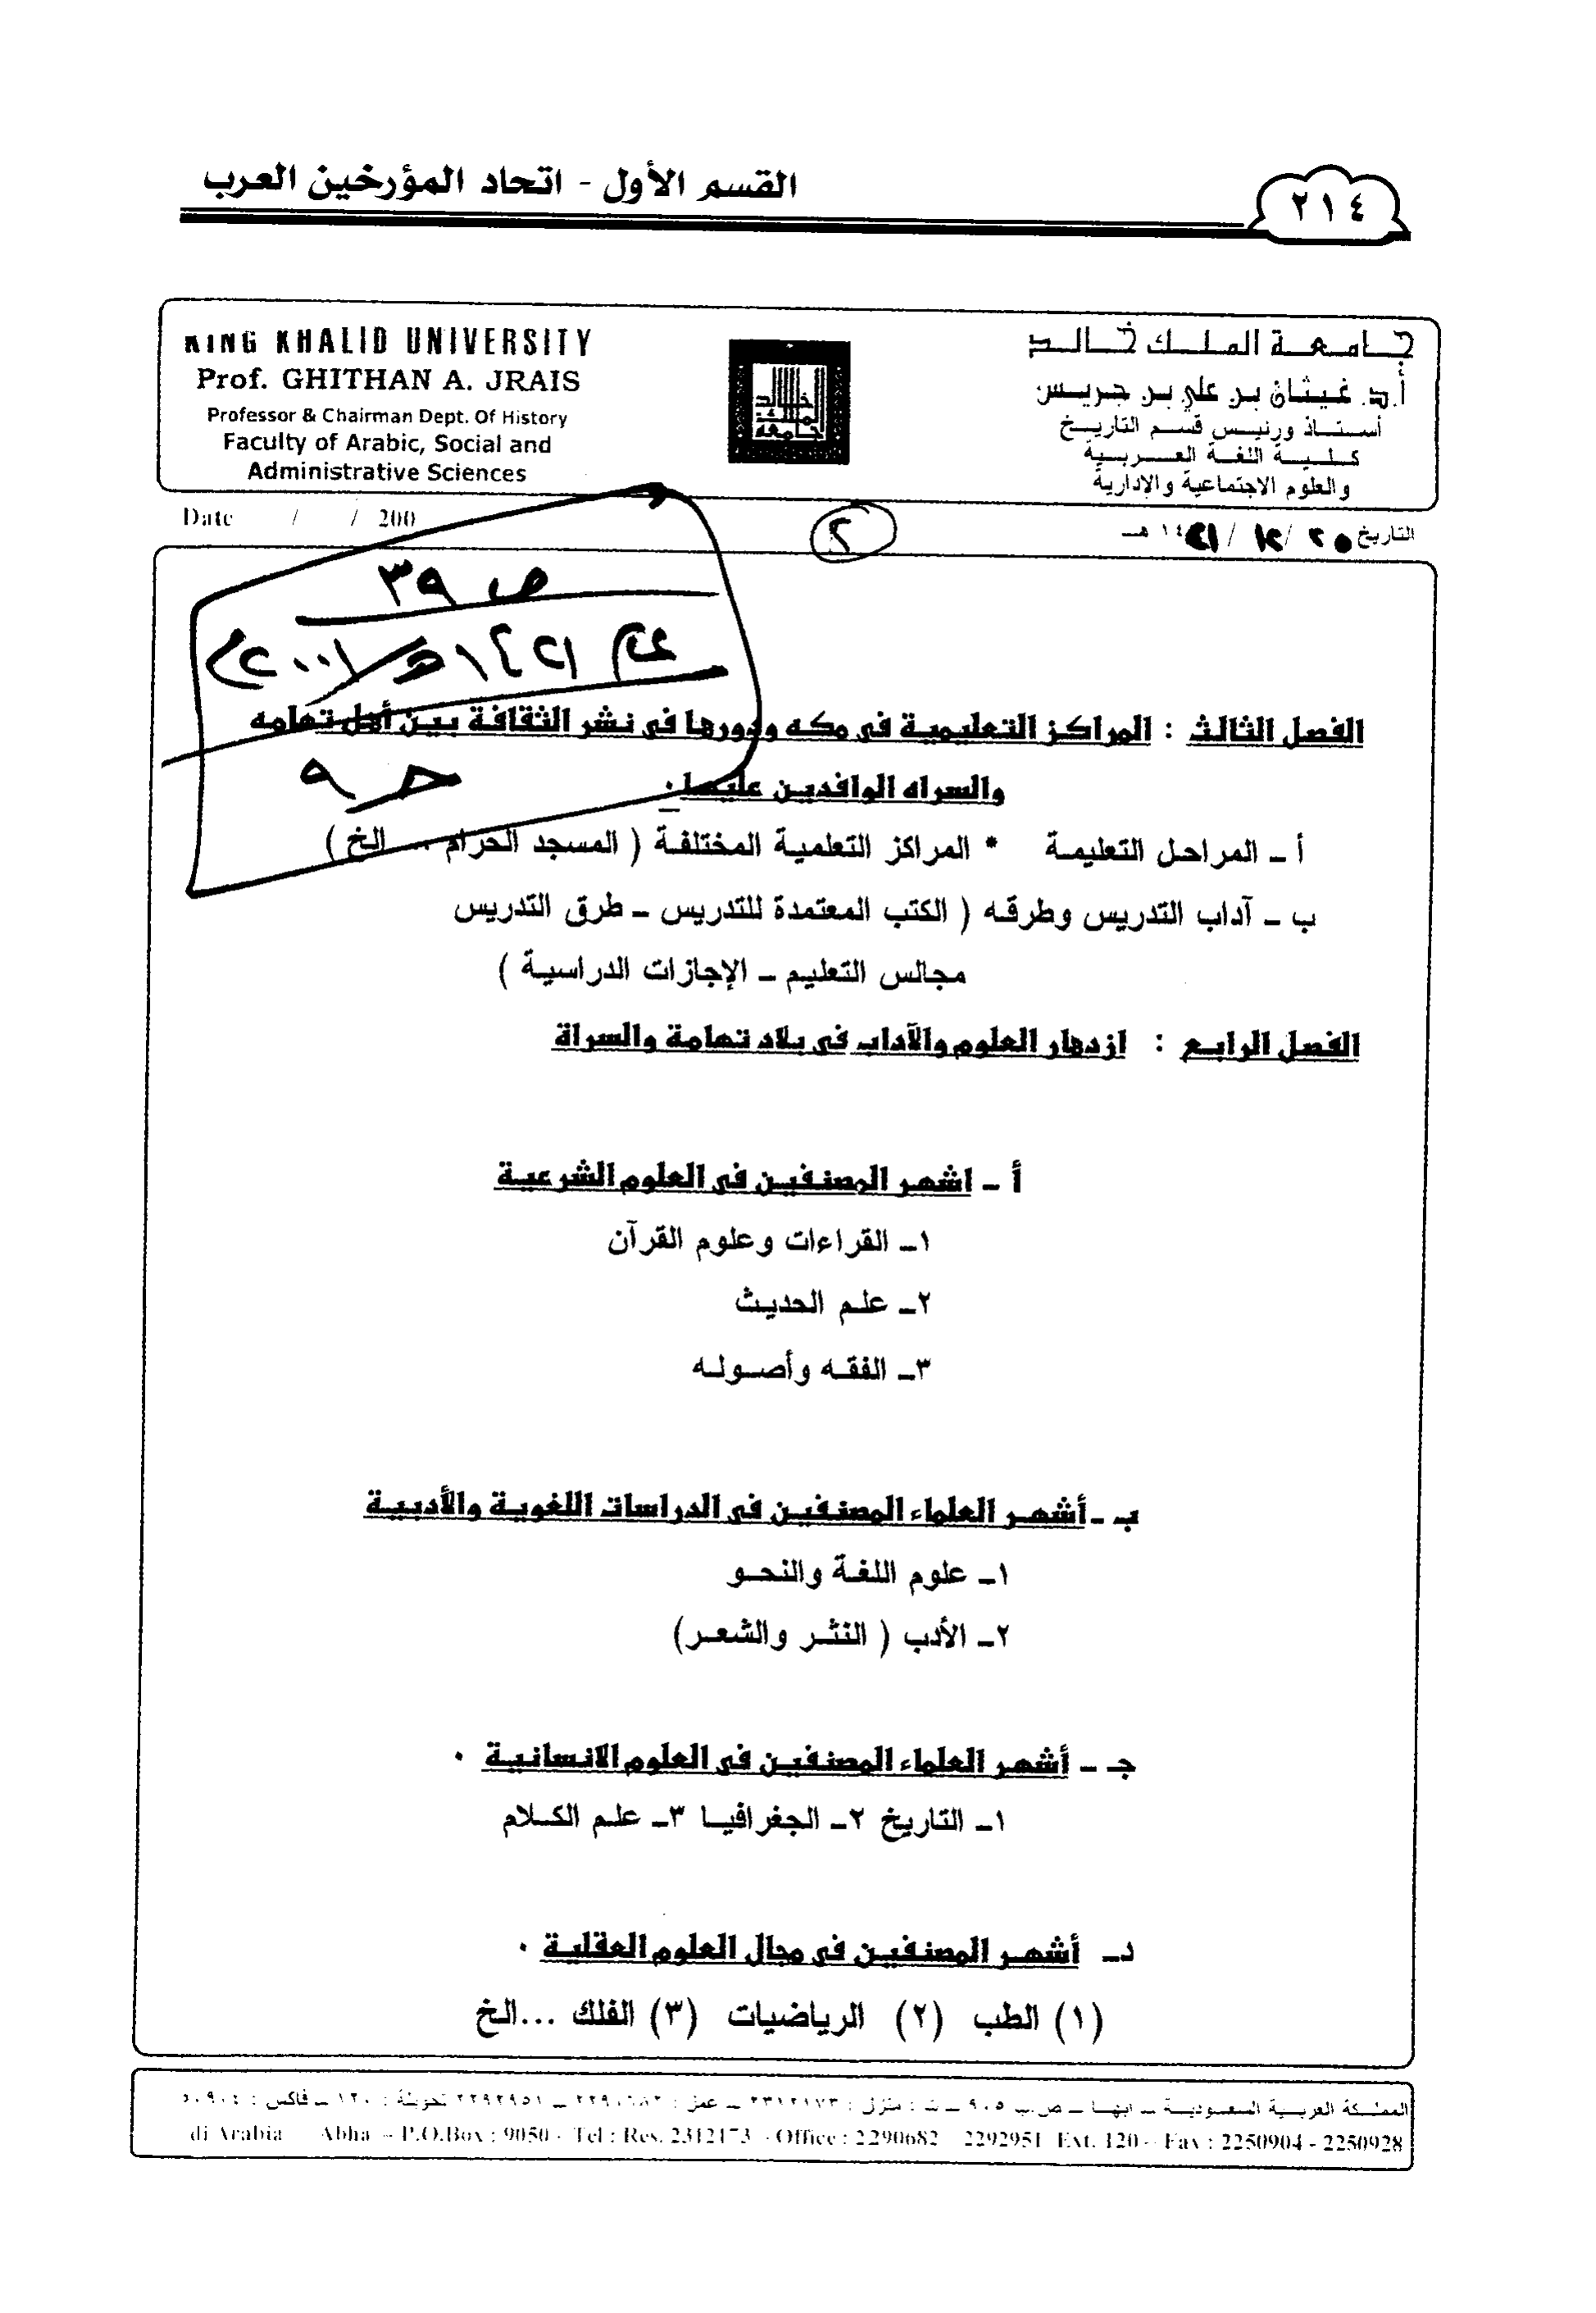 القسم الأول - اتحاد المؤرخين العرب
٢١٤
KING KHALID UNIVERSITY
Prof. GHITHAN A. JRAIS
Professor & Chairman Dept. Of History
Faculty of Arabic, Social and
Administrative Sciences
جامعة الملك خالد
أ.د. غيثان بن علي بن جريس
أستاذ ورئيس قسم التاريخ
كلية اللغة العربية
والعلوم الاجتماعية والإدارية
جامعة الملك خالد
Date / / 200
٢
التاريخ ٢٥ / ١٢ / ١٤ هـ
ص ٣٩
عام ١٤٢١هـ/٢٠٠١م
حـ ٩
الفصل الثالث : المراكز التعليمية في مكه ودورها في نشر الثقافة بين أهل تهامه
والسراه الوافدين عليها ٠
أ – المراحل التعليمة * المراكز التعلمية المختلفة ( المسجد الحرام ... الخ )
ب – آداب التدريس وطرقه ( الكتب المعتمدة للتدريس – طرق التدريس
مجالس التعليم – الإجازات الدراسية )
الفصل الرابع : ازدهار العلوم والآداب في بلاد تهامة والسراة
أ – اشهر المصنفين في العلوم الشرعية
١– القراءات وعلوم القرآن
٢– علم الحديث
٣– الفقه وأصوله
ب – أشهر العلماء المصنفين في الدراسات اللغوية والأدبية
١– علوم اللغة والنحو
٢– الأدب ( النثر والشعر)
جـ – أشهر العلماء المصنفين في العلوم الانسانية ٠
١– التاريخ ٢– الجغرافيا ٣– علم الكلام
د– أشهر المصنفين في مجال العلوم العقلية ٠
(١) الطب (٢) الرياضيات (٣) الفلك ...الخ
المملكة العربية السعودية – ابها – ص.ب ٩٠٥ – ت : منزل : ٢٣١٢١٧٣ – عمل : ٢٢٩٠٦٨٢ – ٢٢٩٢٩٥١ تحويلة : ١٢٠ – فاكس : ٥٠٩٠٤
di Arabia Abha – P.O.Box : 9050 - Tel : Res. 2312173 - Office : 2290682 2292951 Ext. 120 - Fax : 2250904 - 2250928